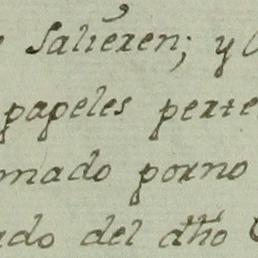 Salieren; y
papeles perte
mado porno
ado del dho